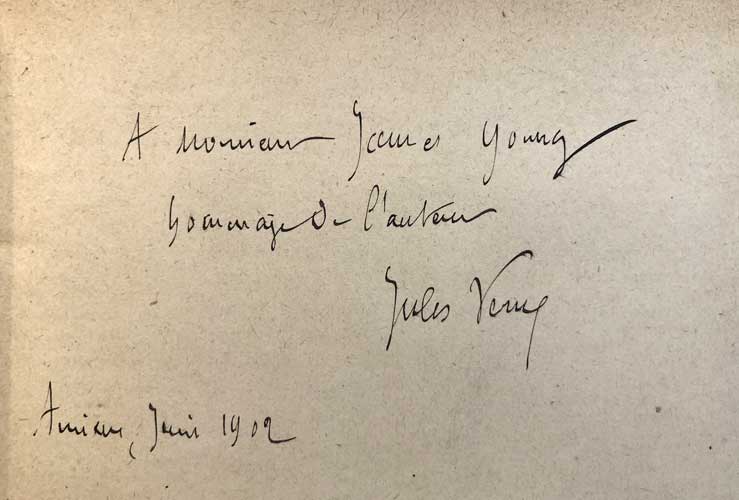 A Monsieur James Young
hommage de l'auteur
Jules Verne
Amiens, Juin 1902